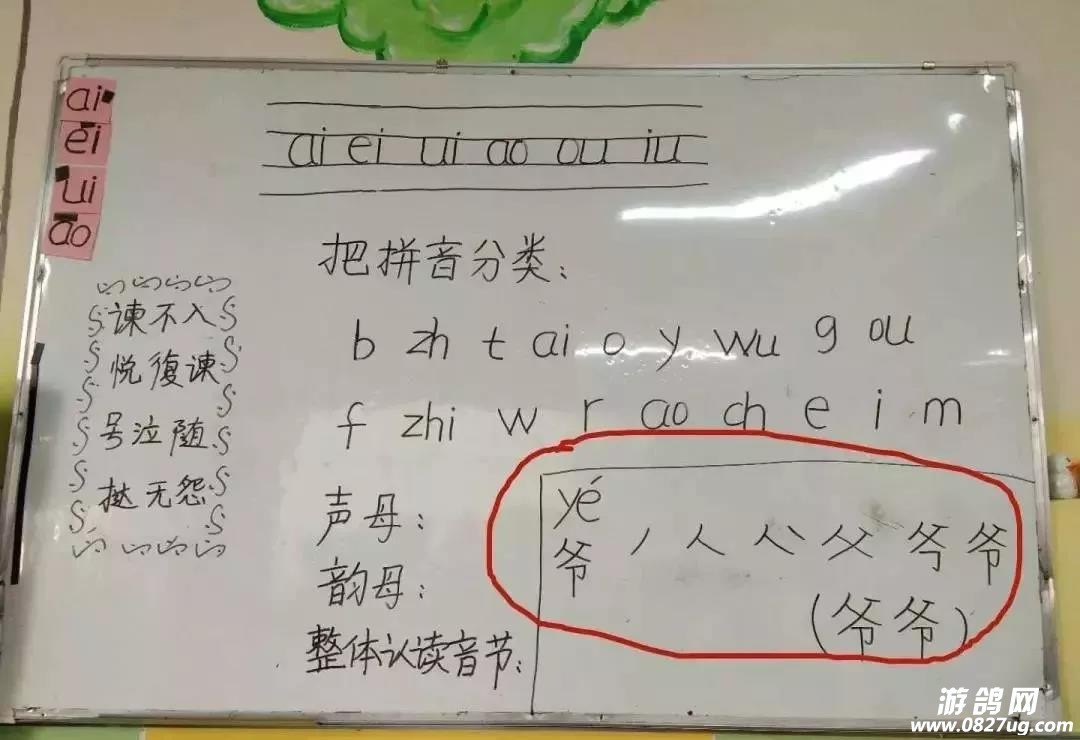 ai
ei
ui
ao
ai ei ui ao ou iu
把拼音分类:
b zh t ai o y wu g ou
f zhi w r ao ch e i m
谏不入
悦復谏
号泣随
挞无怨
声母:
韵母:
整体认读音节:
yé
爷 丿 人 父 爷
(爷爷)
游鸽网
www.0827ug.com